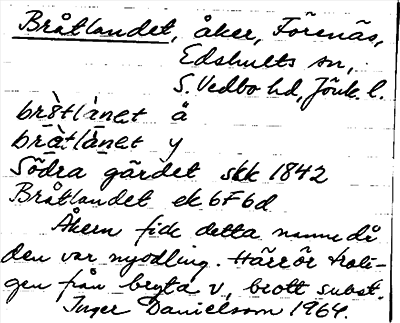 Bråtlandet, åker, Förenäs,
Edshults sn,
S. Vedbo hd, Jönk. l.
å
y
Södra gärdet skk 1842
Bråtlandet ek 6F6d
Åkern fick detta namn då
den var nyodling. Härrör troli-
gen från bryta v, brott subst.
Inger Danielsson 1964.